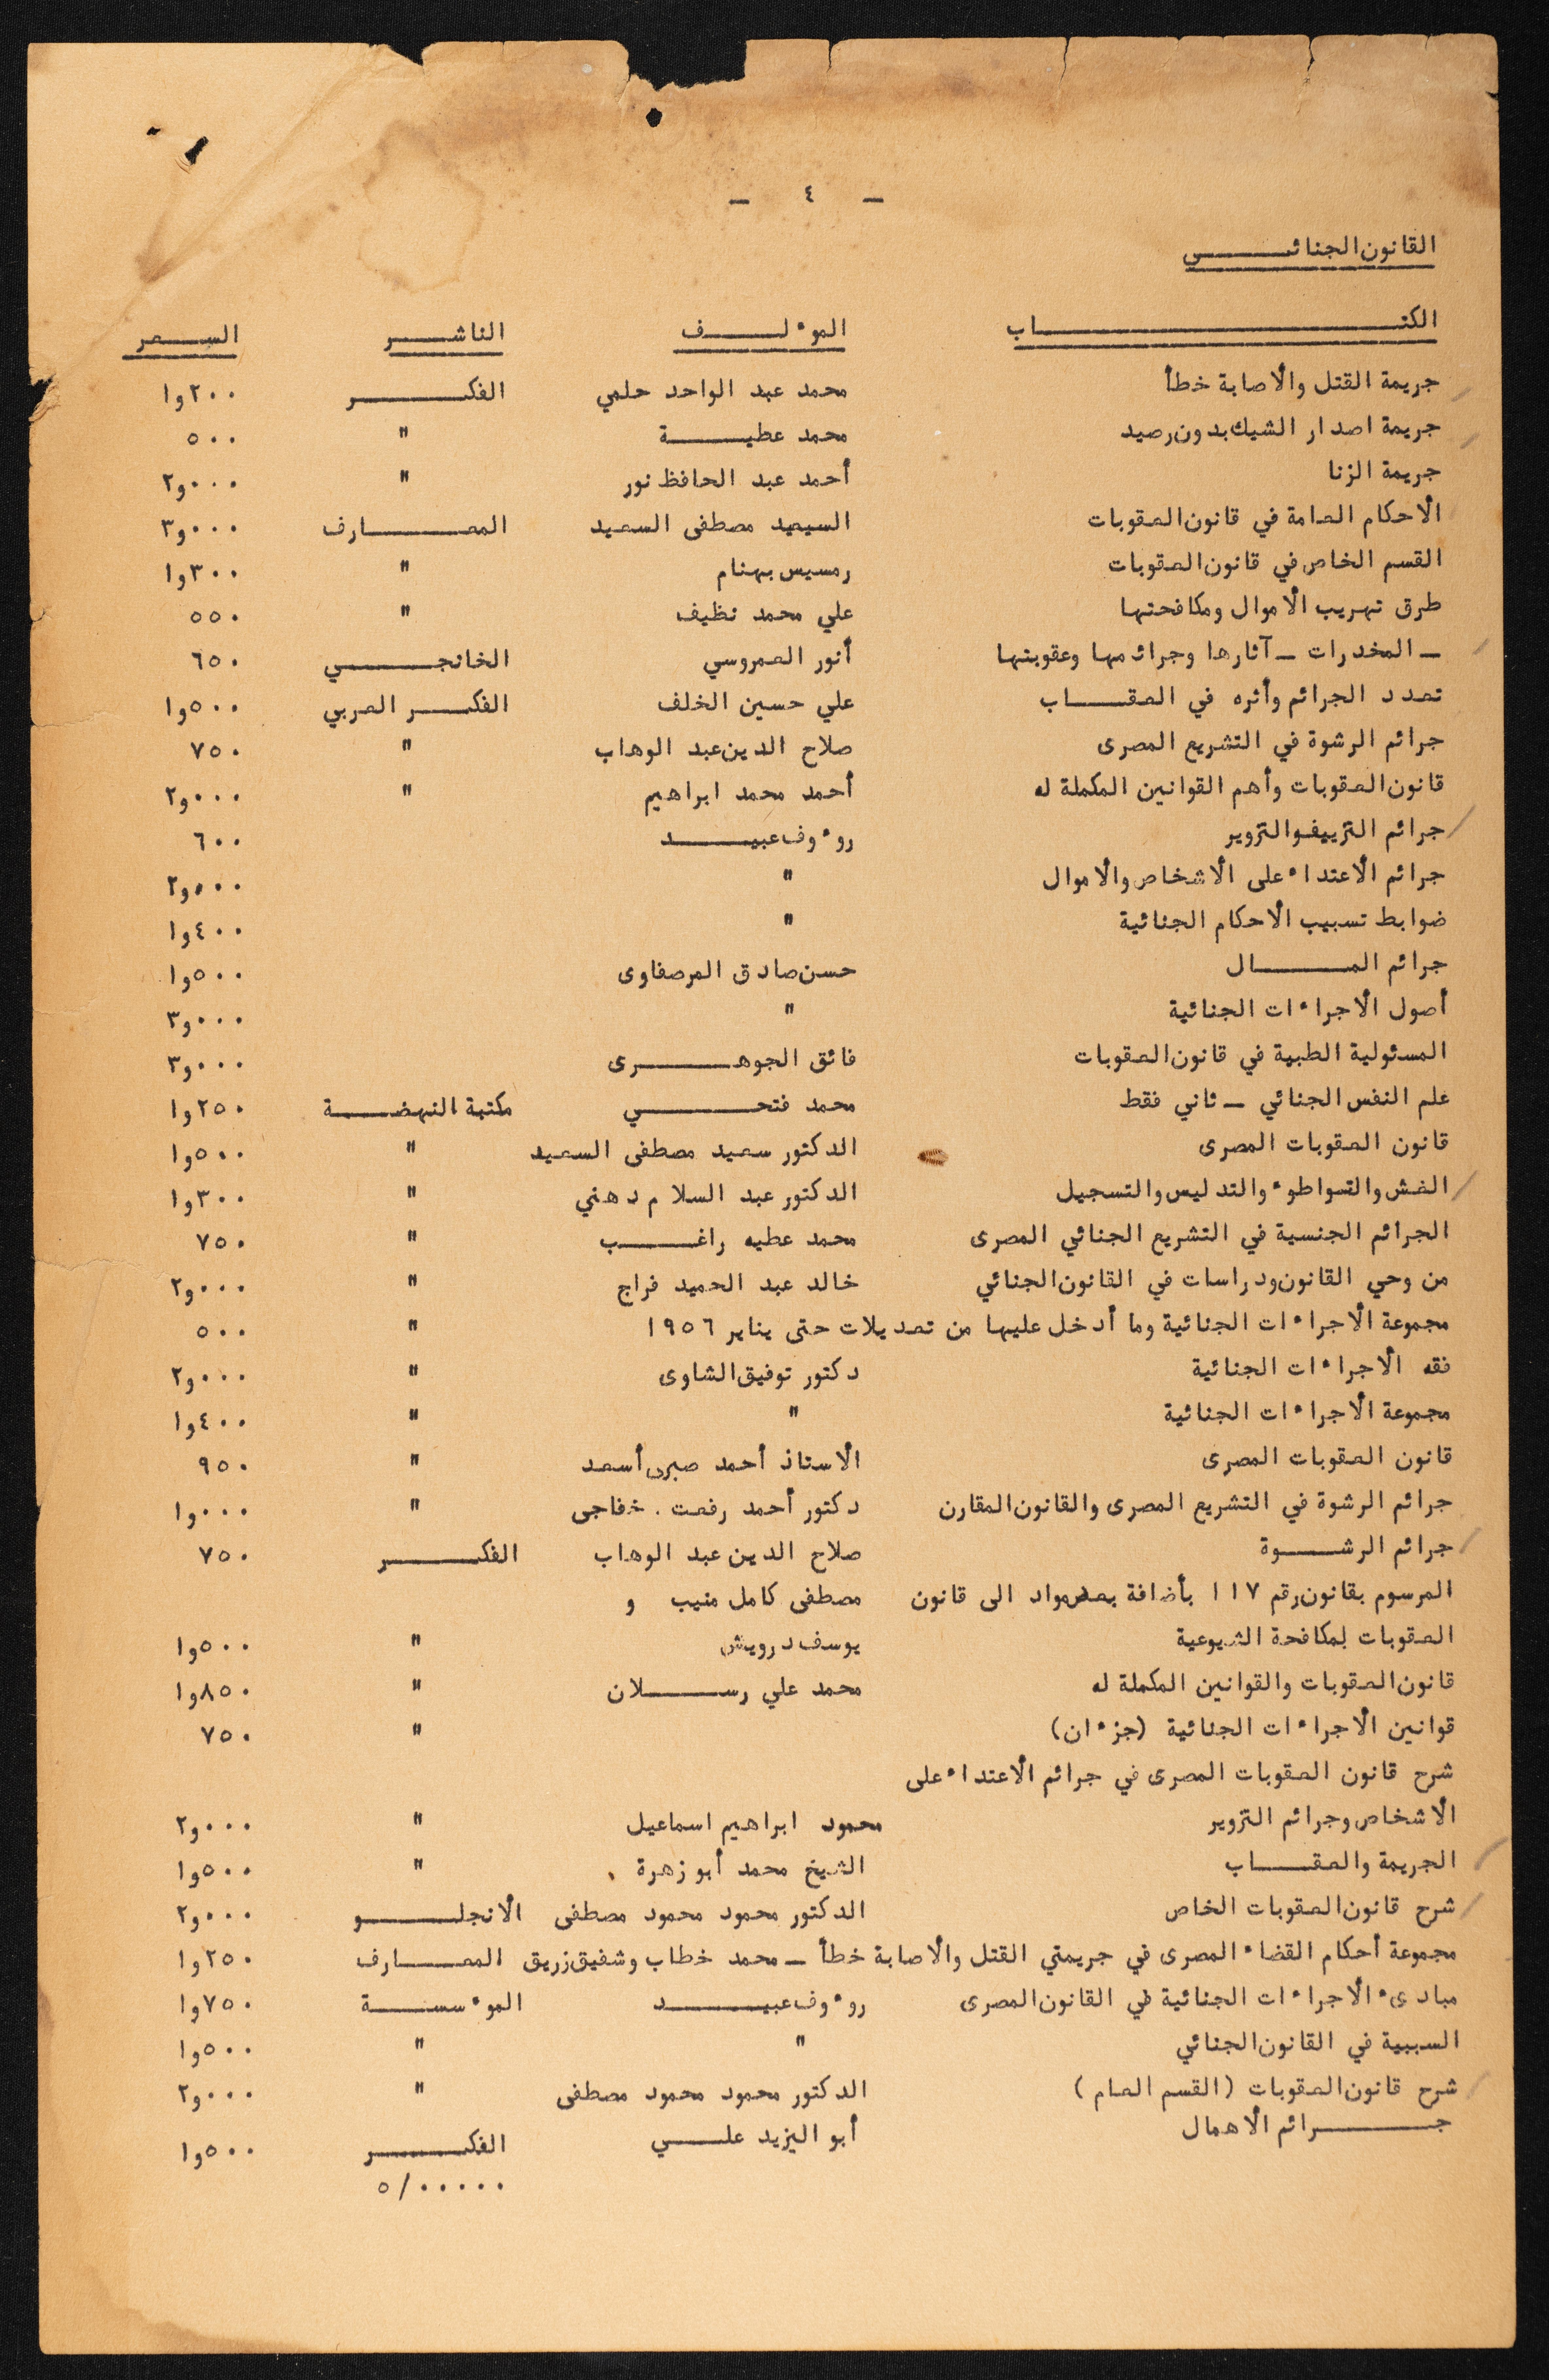 - ٤ -
القانون الجنائي
الكتاب المؤلف الناشر السعر
جريمة القتل والأصابة خطأ محمد عبد الواحد حلمي الفكر ٢٠٠و١
جريمة اصدار الشيك بدون رصيد محمد عطية " ٥٠٠
جريمة الزنا أحمد عبد الحافظ نور " ٠٠٠و٢
الأحكام العامة في قانون العقوبات السعيد مصطفى السعيد المعارف ٠٠٠و٣
القسم الخاص في قانون العقوبات رمسيس بهنام " ٣٠٠و١
طرق تهريب الأموال ومكافحتها علي محمد نظيف " ٥٥٠
- المخدرات - آثارها وجرائمها وعقوبتها أنور العمروسي الخانجي ٦٥٠
تعدد الجرائم وأثره في العقاب علي حسين الخلف الفكر العربي ٥٠٠و١
جرائم الرشوة في التشريع المصرى صلاح الدين عبد الوهاب " ٧٥٠
قانون العقوبات وأهم القوانين المكملة له أحمد محمد ابراهيم " ٠٠٠و٢
جرائم التزييف والتزوير رؤوف عبيد ٦٠٠
جرائم الأعتداء على الأشخاص والأموال " ٠٠٠و٢
ضوابط تسبيب الأحكام الجنائية " ٤٠٠و١
جرائم المال حسن صادق المرصفاوى ٥٠٠و١
أصول الأجراءات الجنائية " ٠٠٠و٣
المسئولية الطبية في قانون العقوبات فائق الجوهرى ٠٠٠و٣
علم النفس الجنائي - ثاني فقط محمد فتحي مكتبة النهضة ٢٥٠و١
قانون العقوبات المصرى الدكتور سعيد مصطفى السعيد " ٥٠٠و١
الغش والتواطوء والتدليس والتسجيل الدكتور عبد السلام دهني " ٣٠٠و١
الجرائم الجنسية في التشريع الجنائي المصرى محمد عطيه راغب " ٧٥٠
من وحي القانون ودراسات في القانون الجنائي خالد عبد الحميد فراج " ٠٠٠و٢
مجموعة الأجراءات الجنائية وما أدخل عليها من تعديلات حتى يناير ١٩٥٦ " ٥٠٠
فقه الأجراءات الجنائية دكتور توفيق الشاوى " ٠٠٠و٢
مجموعة الأجراءات الجنائية " " ٤٠٠و١
قانون العقوبات المصرى الأستاذ أحمد صبرى أسعد " ٩٥٠
جرائم الرشوة في التشريع المصرى والقانون المقارن دكتور أحمد رفعت . خفاجى " ٠٠٠و١
جرائم الرشوة صلاح الدين عبد الوهاب الفكر ٧٥٠
المرسوم بقانون رقم ١١٧ بأضافة بعض مواد الى قانون مصطفى كامل منيب و
العقوبات لمكافحة الشيوعية يوسف درويش " ٥٠٠و١
قانون العقوبات والقوانين المكملة له محمد علي رسلان " ٨٥٠و١
قوانين الأجراءات الجنائية (جزءان) " ٧٥٠
شرح قانون العقوبات المصرى في جرائم الأعتداء على
الأشخاص وجرائم التزوير محمود ابراهيم اسماعيل " ٠٠٠و٢
الجريمة والعقاب الشيخ محمد أبو زهرة " ٥٠٠و١
شرح قانون العقوبات الخاص الدكتور محمود محمود مصطفى الأنجلو ٠٠٠و٢
مجموعة أحكام القضاء المصرى في جريمتي القتل والأصابة خطأ - محمد خطاب وشفيق زريق المعارف ٢٥٠و١
مبادىء الأجراءات الجنائية في القانون المصرى رؤوف عبيد المؤسسة ٧٥٠و١
السببية في القانون الجنائي " " ٥٠٠و١
شرح قانون العقوبات (القسم العام) الدكتور محمود محمود مصطفى " ٠٠٠و٢
جرائم الأهمال أبو اليزيد علي الفكر ٥٠٠و١
٥/٠٠٠٠٠